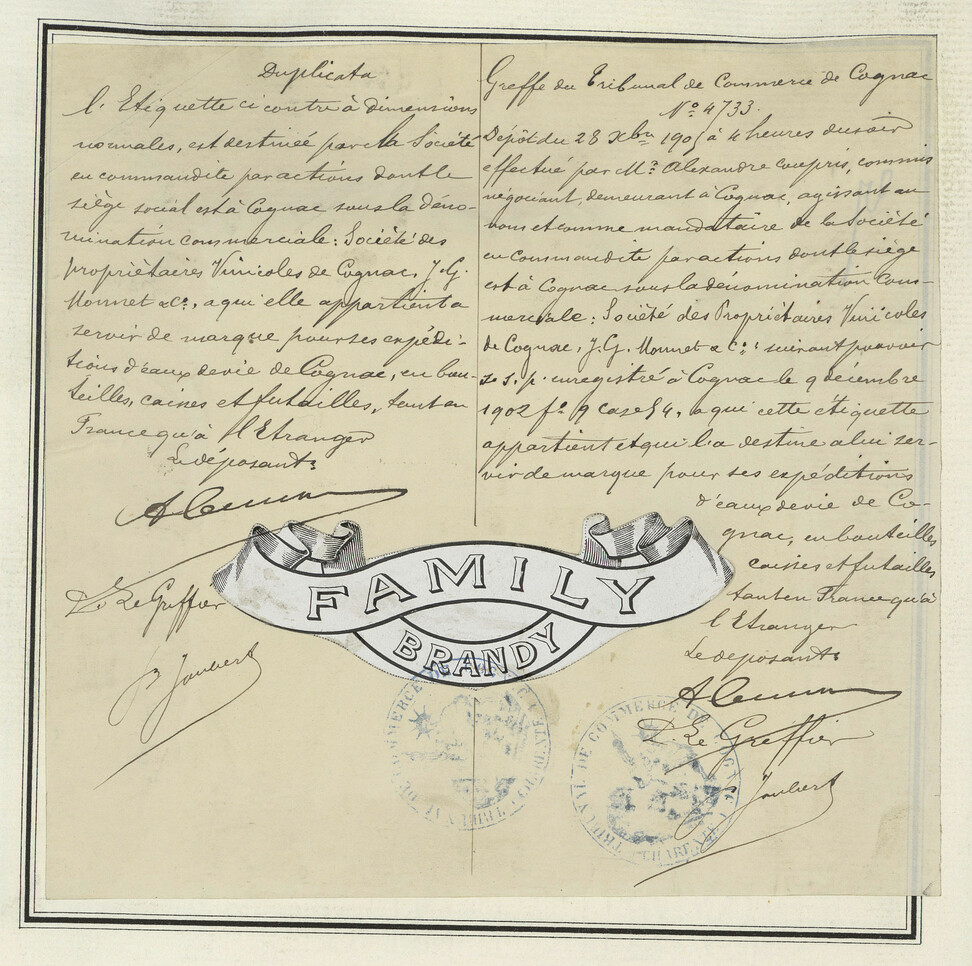 Duplicata
L'Etiquette ci contre à dimensions
normales, est destinée par la Société
en commandite par actions dont le
siège social est à Cognac sous la déno-
mination commerciale: Société des
propriètaires Vinicoles de Cognac, J. G.
Monnet & Cº., a qui elle appartient a
servir de marque pour ses expédi-
tions d'eaux de vie de Cognac, en bou-
teilles, caisses et futailles, tant en
France qu'à l'Etranger
Le déposant:
Le Greffier
Joubert
Greffe du Tribunal de Commerce de Cognac
Nº 4733.
Dépôt du 28 Xbre 1905 à 4 heures du soir
effectué par Mr. Alexandre, commis
négociant, demeurant à Cognac, agissant au
nom et comme mandataire de la Société
en commandite par actions dont le siège
est à Cognac sous la dénomination Com-
merciale: Société des Propriétaires Vinicoles
de Cognac, J. G. Monnet & Cº: suivant pouvoir
s. s. p. enregistré à Cognac le 9 décembre
1902 fº 9 case 54, a qui cette étiquette
appartient et qui l'a destine a lui ser-
vir de marque pour ses expéditions
d'eaux de vie de Co-
gnac, en bouteilles
caisses et futailles
tant en France qu'à
l'Etranger
Le déposant:
Le Greffier
Joubert
FAMILY
BRANDY
TRIBUNAL DE COMMERCE DE COGNAC
CHARENTE
TRIBUNAL DE COMMERCE DE COGNAC
CHARENTE